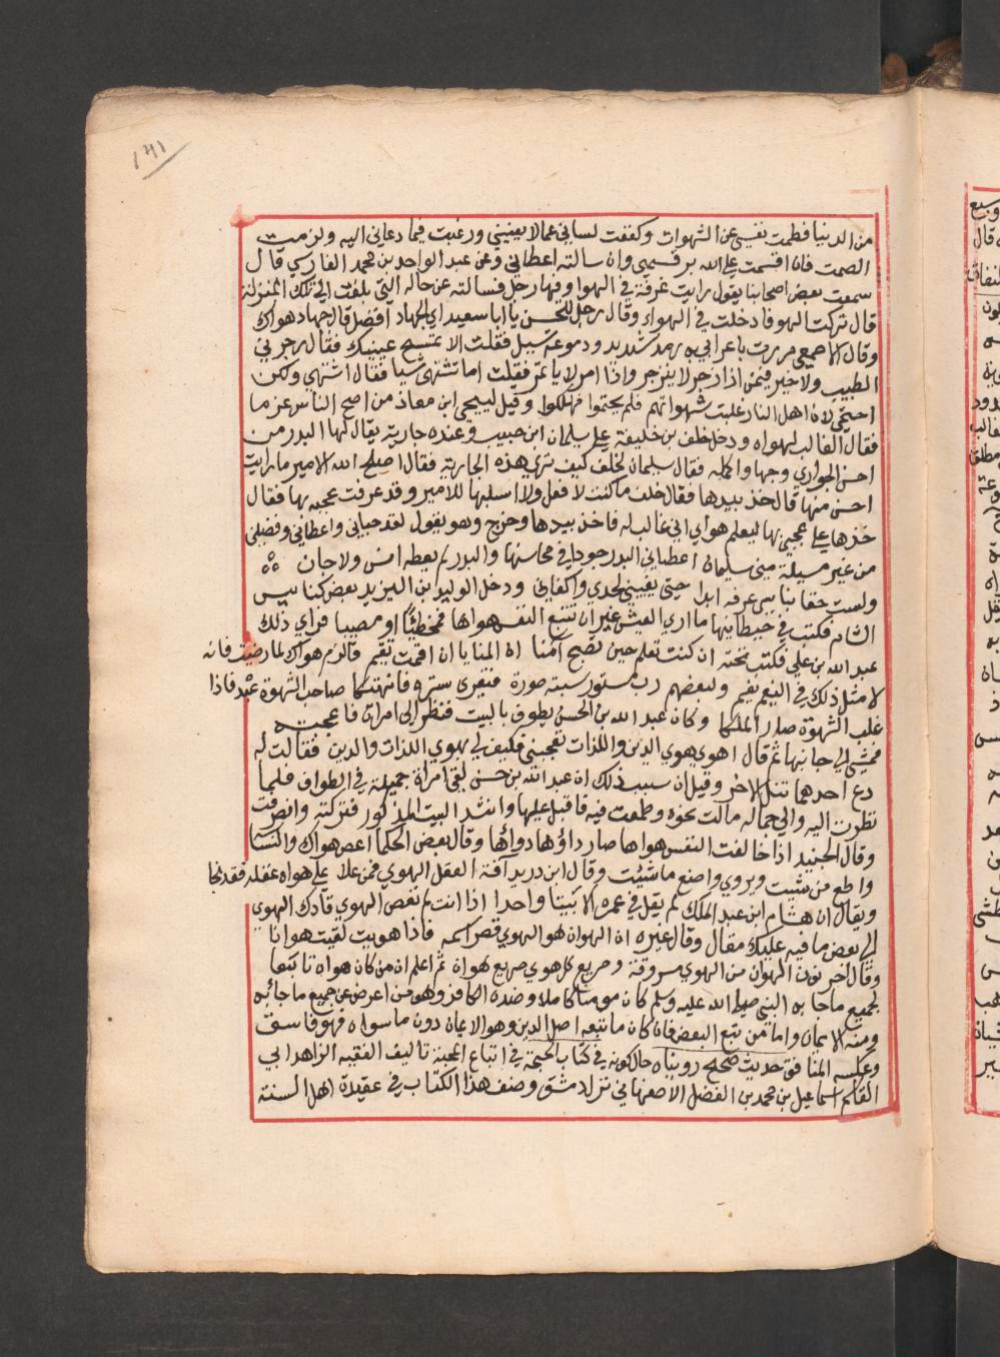 ١٦١
من الدنيا فطمت نفسي عن الشهوات وكففت لساني عمالا يعنيني ورغبت فيما دعاني اليه ولزمت
الصمت فان اقسمت على الله بر قسمي وان سالته اعطاني وعن عبد الواحد بن محمد الفارسي قال
سمعت بعض اصحابنا يقول رايت غرفة في الهوا وفيها رجل فسالته عن حاله التي بلغت الى تلك المنزلة
قال تركت الهوفادخلت في الهواء وقال رجل للحسن يا ابا سعيد اي الجهاد افضل قال جهاد هواك
وقال الاصمعي مررت باعرابي به رمد شديد ودموعه تسيل فقلت الا تمسح عينيك فقال زجرني
الطبيب ولا خير فيمن اذا زجر لا ينزجر واذا امر لا ياتمر فقلت اما تشتهي شيا فقال اشتهي ولكن
احتمي لان اهل النار غلبت شهواتهم فلم يحتموا فهلكوا وقيل ليحيى ابن معاذ من اصح الناس عزما
فقال الغالب لهواه ودخل خلف بن خليفة على سليمان ابن حبيب وعنده جارية يقال لها البدر من
احسن الجواري وجها واكمله فقال سليمان لخلف كيف ترى هذه الجارية فقال اصلح الله الامير ما رايت
احسن منها قال خذ بيدها فقال خلف ما كنت لافعل ولا اسلبها للامير وقد عرفت عجبه بها فقال
خذها على عجبي بها ليعلم هواي اني غالب له فاخذ بيدها وخرج وهو يقول لقد حباني واعطاني وفضلني
من غير مسيلة مني سليمان اعطاني البدر جودا في محاسنها والبدر لم يعطه انس ولا جان
ولست حقا بناسي عرفه ابدا حتى يغيبني لحدي واكفاني ودخل الوليد بن اليزيد بعض كنايس
الشام فكتب في حيطانها ما اري العيش غير ان تتبع النفس هواها فمخطيًا او مصيبا فراي ذلك
عبد الله بن علي فكتب تحته ان كنت تعلم حين تصبح آمنا ان المنايا ان اقمت تقيم فالزم هواك لما رضيت فانه
لا مثل ذلك في النعيم نعيم ولبعضهم رب مستور سبته صورة فتعرى ستره فانهتكا صاحب الشهوة عبد فاذا
غلب الشهوة صار الملكا وكان عبد الله بن الحسن يطوف بالبيت فنظر الى امراة فاعجبته
فمشى الى جانبها ثم قال اهوى هوى الدين واللذات تعجبني فكيف لي بهوي اللذات والدين فقالت له
دع احدهما تنل الاخر وقيل ان سبب ذلك ان عبد الله بن حسن لقي امراة جميلة في الطواف فلما
نظرت اليه والى جماله مالت نحوه وطمعت فيه فاقبل عليها وانشد البيت المذكور فتركته وانصرفت
وقال الجنيد اذا خالفت النفس هواها صار داؤها دواؤها وقال بعض الحكما اعص هواك والنسا
واطع من شيت ويروي واصنع ما شئت وقال ابن دريد آفة العقل الهوي فمن علا على هواه عقله فقد نجا
ويقال ان هشام ابن عبد الملك لم يقل في عمره الا بيتا واحدا اذا انت لم تعص الهوي قادك الهوي
الى بعض ما فيه عليك مقال وقال غيره ان الهوان هو الهوي قصر اسمه فاذا هويت لقيت هوانا
وقال اخر نون الهوان من الهوي مسروقة وصريع كل هوي صريع هوان ثم اعلم ان من كان هواه تابعا
لجميع ما جا به النبي صلى الله عليه وسلم كان مومنا كاملا وضده الكافر وهو من اعرض عن جميع ما جا به
ومنه الايمان واما من تبع البعض فان كان ما تبعه اصل الدين وهو الايمان دون ما سواه فهو فاسق
وعكسه المنافق حديث صحيح رويناه حال كونه في كتاب الحجة في اتباع المحجة تاليف الفقيه الزاهد ابي
القاسم اسماعيل بن محمد بن الفضل الاصفهاني نزل دمشق وصنف هذا الكتاب في عقيدة اهل السنة